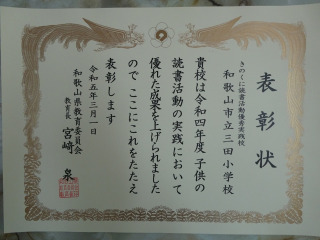 表彰状
きのくに読書活動優秀実践校
和歌山市立三田小学校
貴校は令和四年度 子供の
読書活動の実践において
優れた成果を上げられました
ので ここにこれをたたえ
表彰します
令和五年三月一日
和歌山県教育委員会
教育長 宮﨑 泉